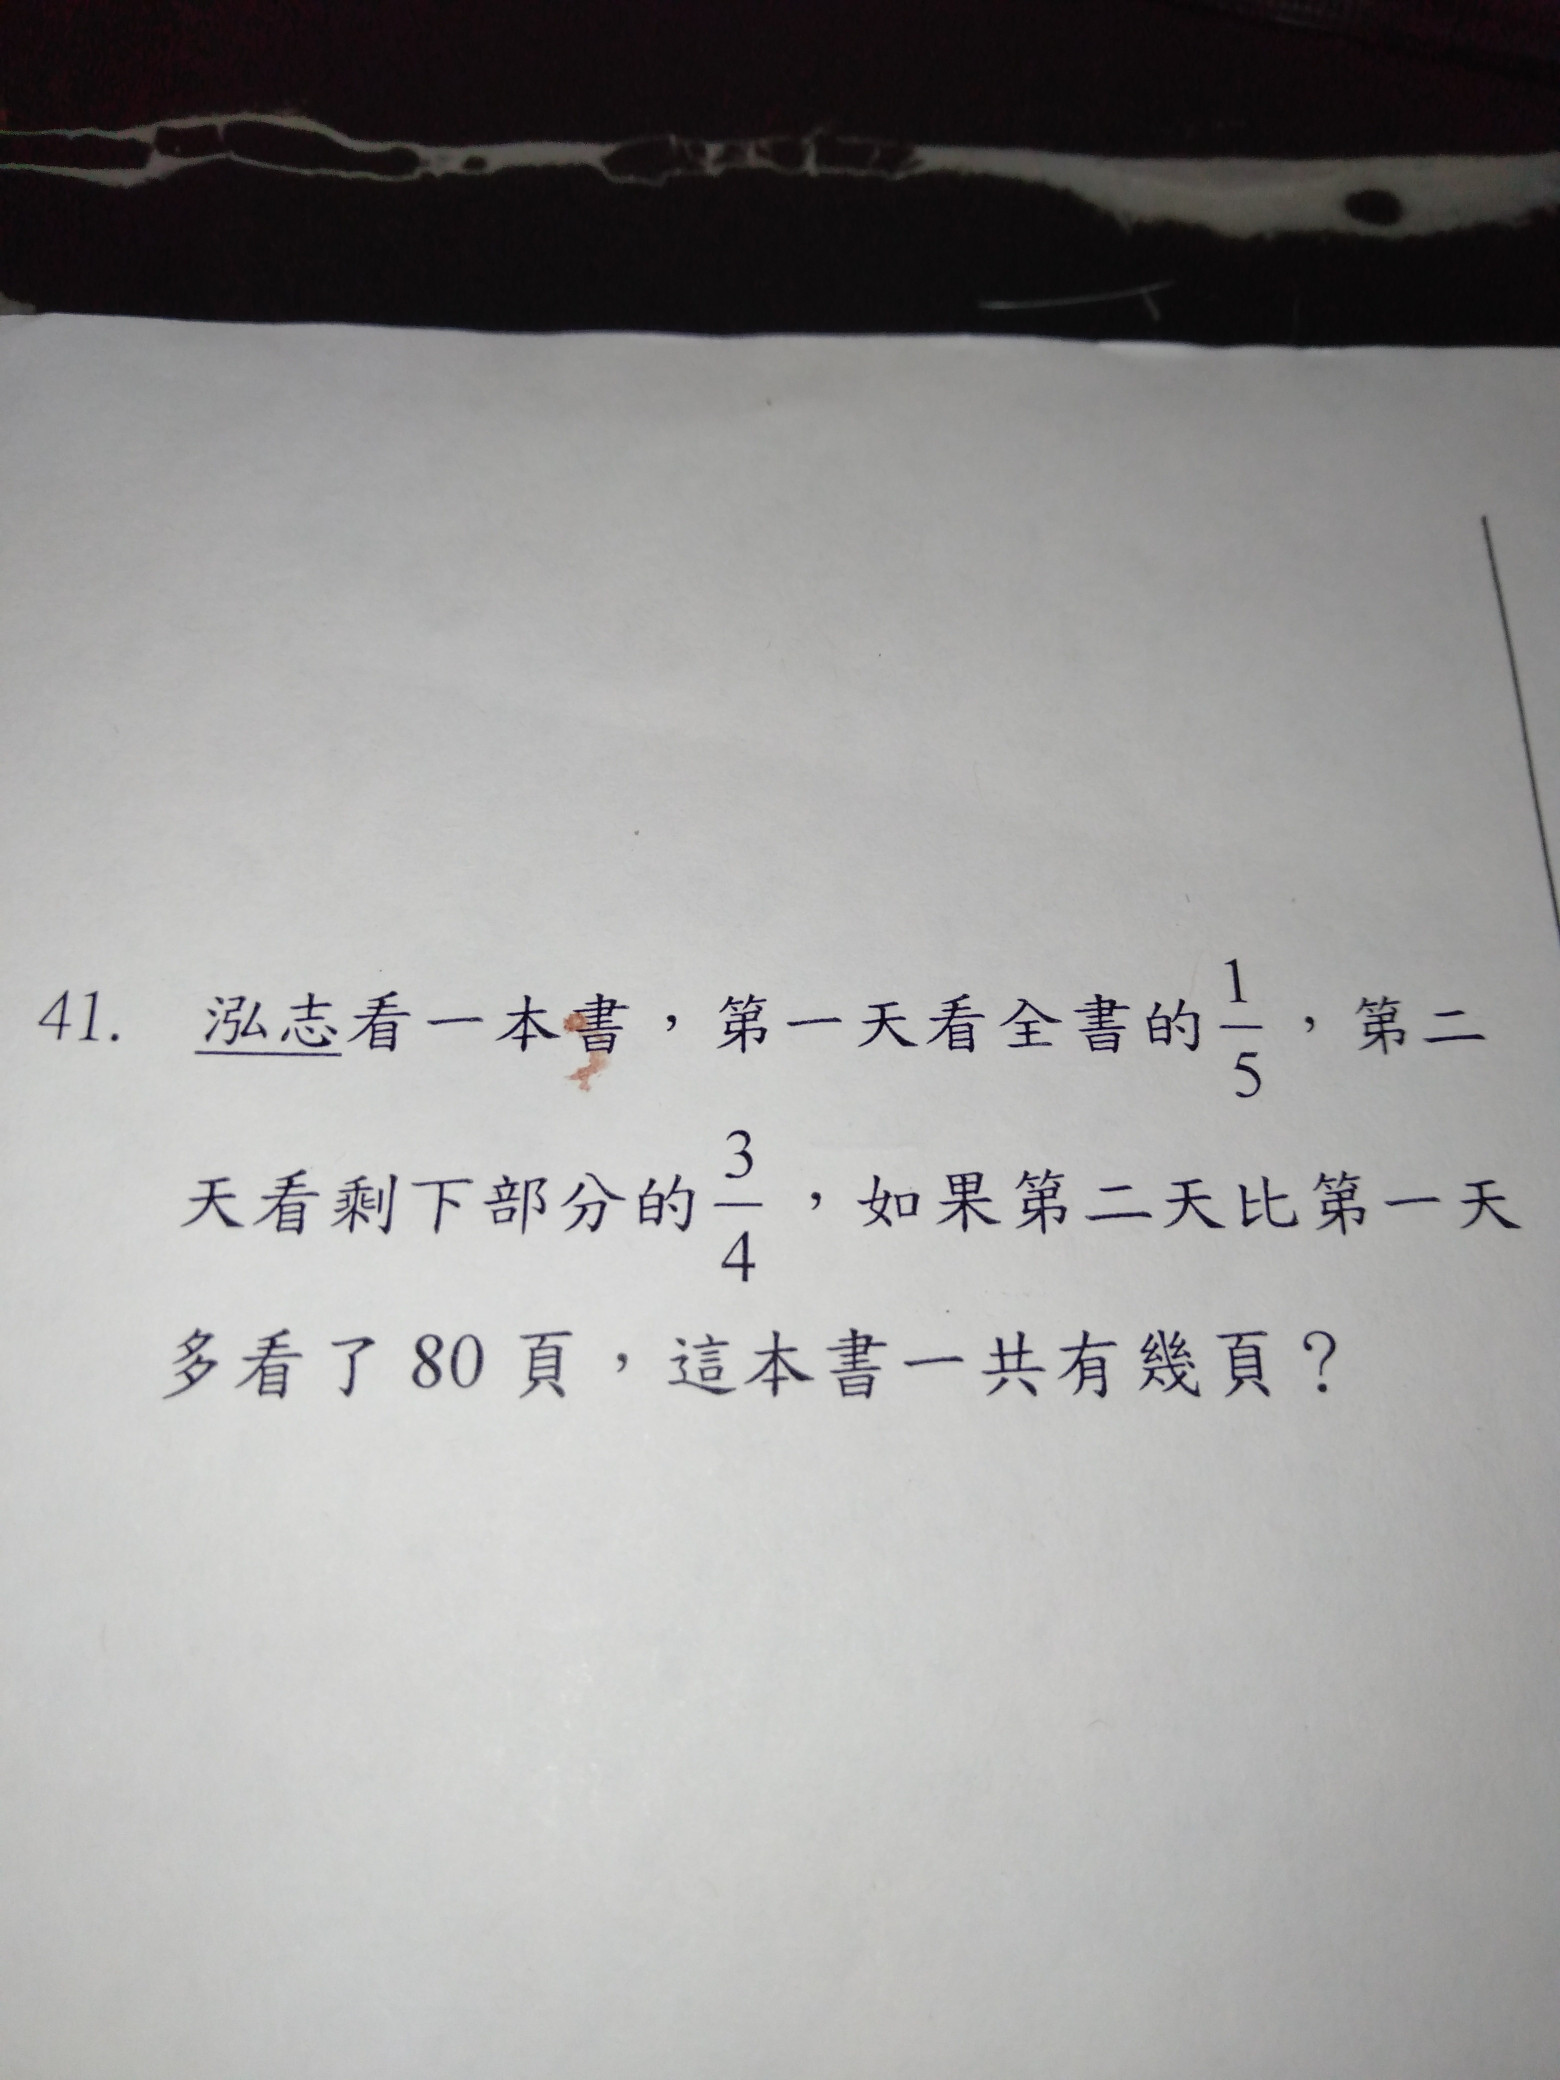 41. 泓志看一本書，第一天看全書的1/5，第二
天看剩下部分的3/4，如果第二天比第一天
多看了80頁，這本書一共有幾頁？